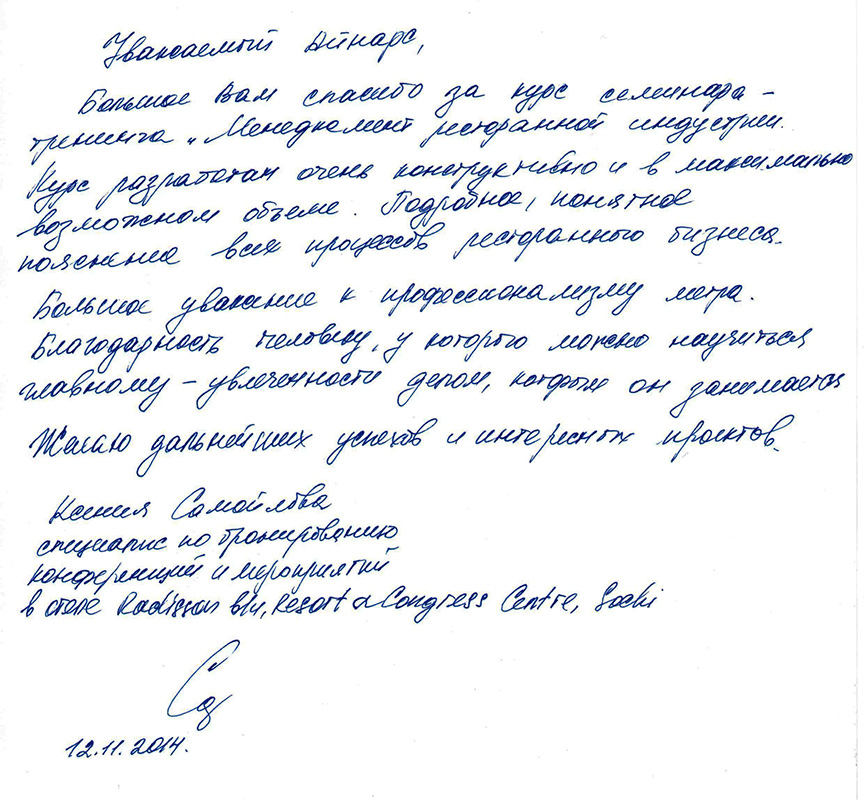 Уважаемый Айнарс,
Большое Вам спасибо за курс семинара –
тренинга „Менеджмент ресторанной индустрии.
Курс разработан очень конструктивно и в максимально
возможном объеме. Подробное, понятное
пояснение всех процессов ресторанного бизнеса.
Большое уважение к профессионализму метра.
Благодарность человеку, у которого можно научиться
главному – увлеченности делом, которым он занимается
Желаю дальнейших успехов и интересных проектов.
Ксения Самойлова
специалис по бронированию
конференций и мероприятий
в отеле Radisson Blu, Resort & Congress Centre, Sochi
12.11.2014.